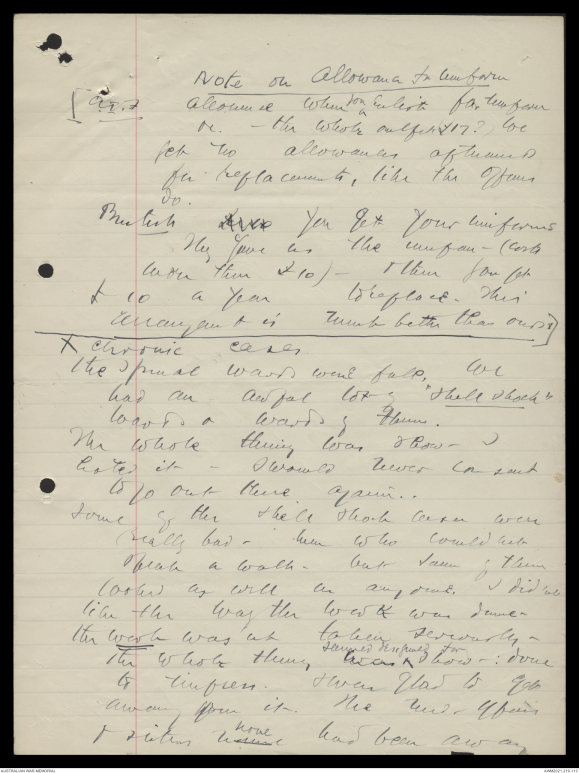 Note on Allowance for Uniform
[Aust allowance when you Enlist for uniform
etc. - the whole outfit £17? We
get no allowances afterwards
for replacements, like the Officers
do.
British You get your uniforms
They give us the uniform - (costs
more than £10) - & then you get
£10 a year to replace. This
arrangemt is much better than ours]
X chronic cases
The Spinal wards were full. We
had an awful lot of "shell shock"
wards & wards of them.
The whole thing was show - I
hated it - I would never consent
to go out there again..
Some of the shell shock cases were
really bad - men who could not
speak or walk - but some of them
looked as well as anyone. I did not
like the way the work was done -
the work was not taken seriously -
the whole thing was seemed designed for show - : done
to impress. I was glad to get
away from it. The
& sisters none had been away
AUSTRALIAN WAR MEMORIAL